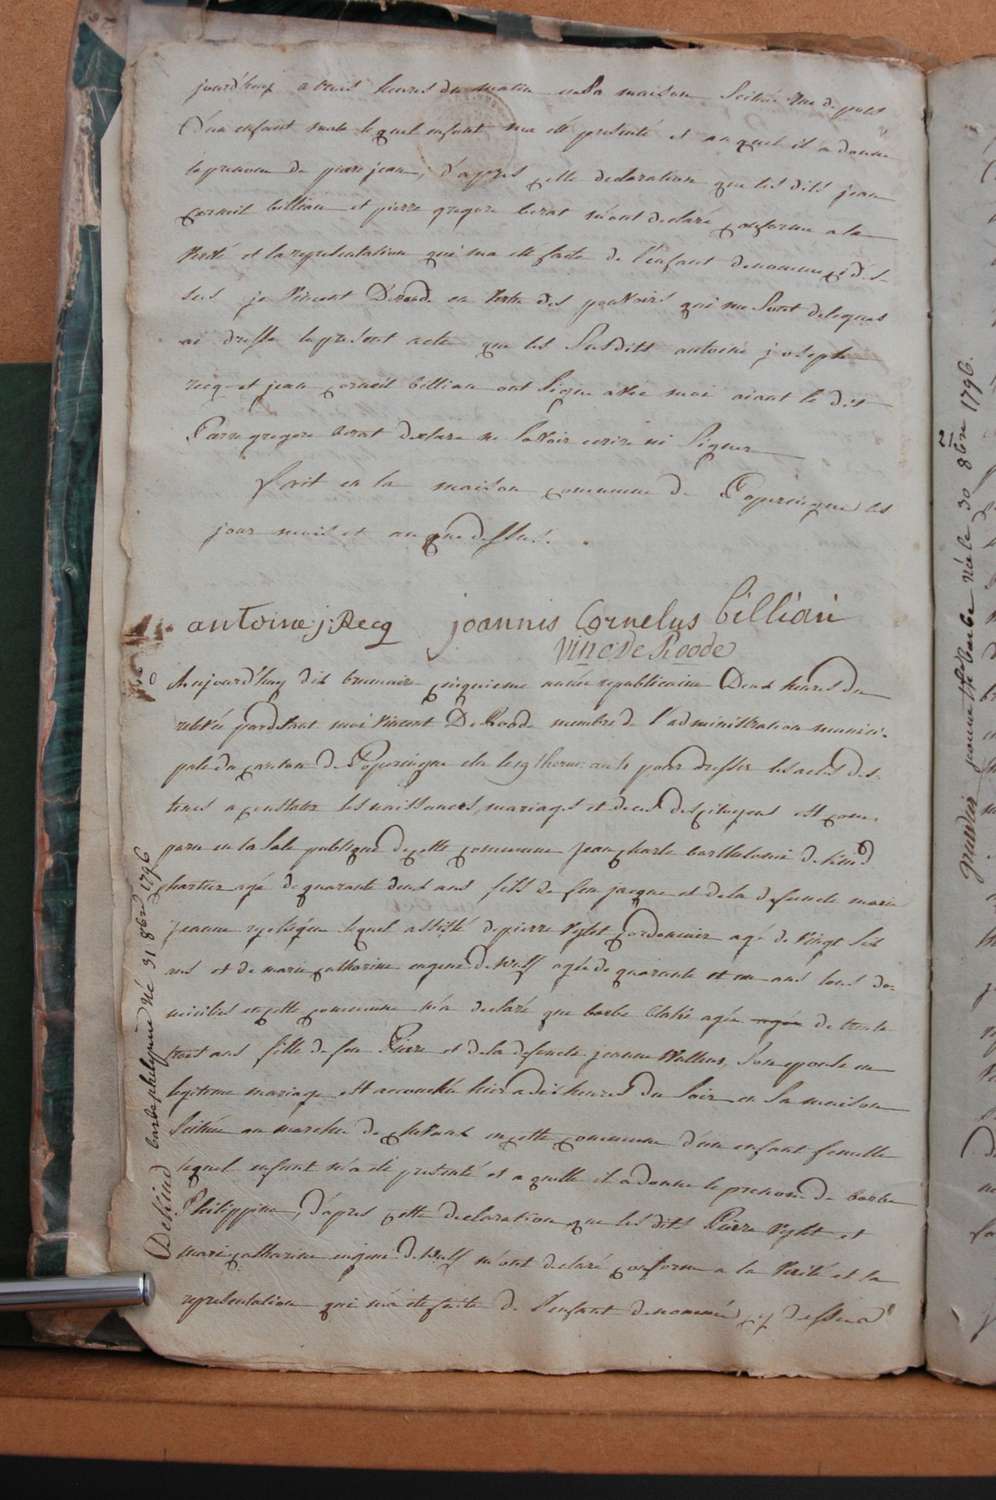 jourd'huy a trois heures du matin en sa maison scitué rue de pots
d'un enfant masle lequel enfant m'a été presenté et auquel il a donné
le prenom de pierre jean, d'apres cette declaration que les dits jean
corneil billiau et pierre gregoire berat m'ont declaré conforme a la
verité et la representation qui m'a été faite de l'enfant denommé cy des-
sus je Vincent Deroode en vertu des pouvoirs qui me sont delegués
ai dressé le present acte que les susdits antoine joseph
recq et jean corneil billiau ont signé avec moi aiant le dit
Pierre gregoire berat declaré ne savoir ecrire ni signer
fait en la maison commune de Poperingue les
jour mois et an que dessus.
antoine j: Recq joannis Cornelus billiau
Vinc De Roode
Aujourd'huy dix brumaire cinquieme année republicaine Deux heures de
relevée pardevant moi Vincent De Roode membre de l'administration munici-
pale du canton de Poperingue elu le 19 thermidor 4 pour dresser les actes des-
tinés a constater les naissances, mariages et deces des citoyens est com-
paru en la sale publique de cette commune jean charle barthelomé deKind
chartier agé de quarante deux ans fils de feu jacque et de la defuncte marie
jeanne lequel assisté de pierre Vylet cordonnier agé de vingt six
ans et de marie catharine eugene deWulf agée de quarante et un ans tous do-
miciliés en cette commune m'a declaré que barbe agée de trente
huit ans fille de feu Pierre et de la defuncte jeanne Walleus, son epouse en
legitime mariage est accouchée hier a dix heures du soir en sa maison
scituée au marche de chevaux en cette commune d'un enfant femelle
lequel enfant m'a été presenté et a quelle il a donné le prenom de barbe
Philippine, d'apres cette declaration que les dits Pierre Vylet et
marie catharine eugene deWulf m'ont declaré conforme a la verité et la
representation qui m'a été faite de l'enfant denommé cy dessus
DeKind barbe philippine né 31 8bre 1796
21
jeanne barbe née le 30 8bre 1796.